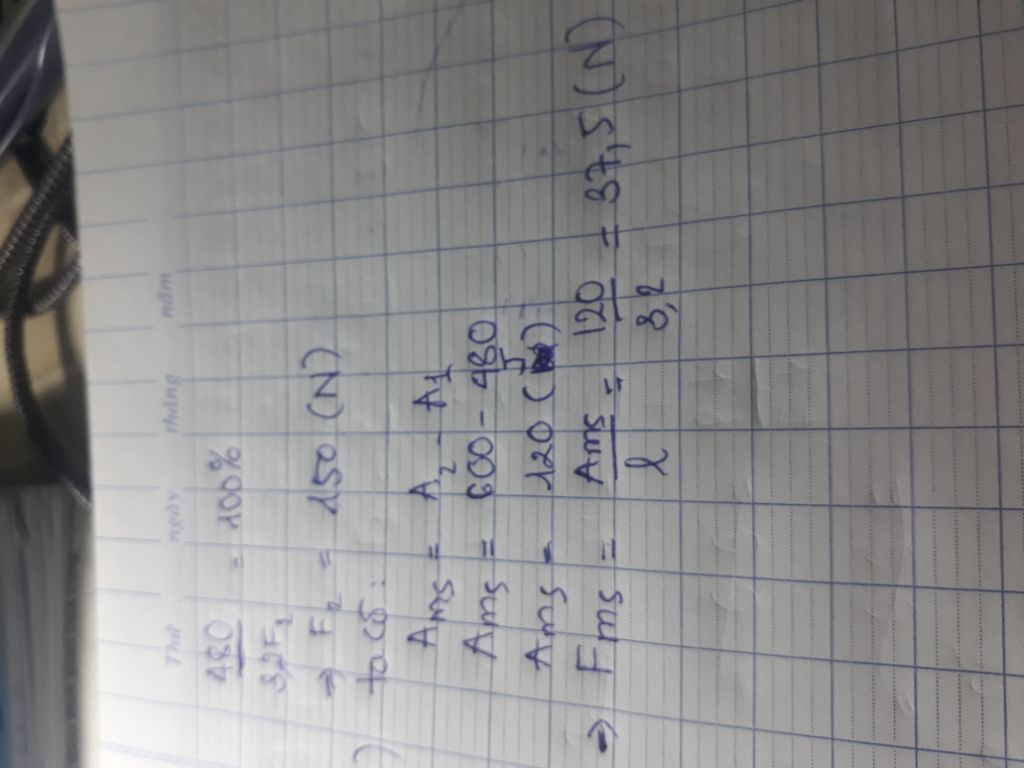 Thứ ngày tháng năm
480 / 3,2F₂ = 100%
⇒ F₂ = 150 (N)
) ta có:
Ams = A₂ - A1
Ams = 600 - 480
Ams = 120 (J)
⇒ Fms = Ams / l = 120 / 3,2 = 37,5 (N)